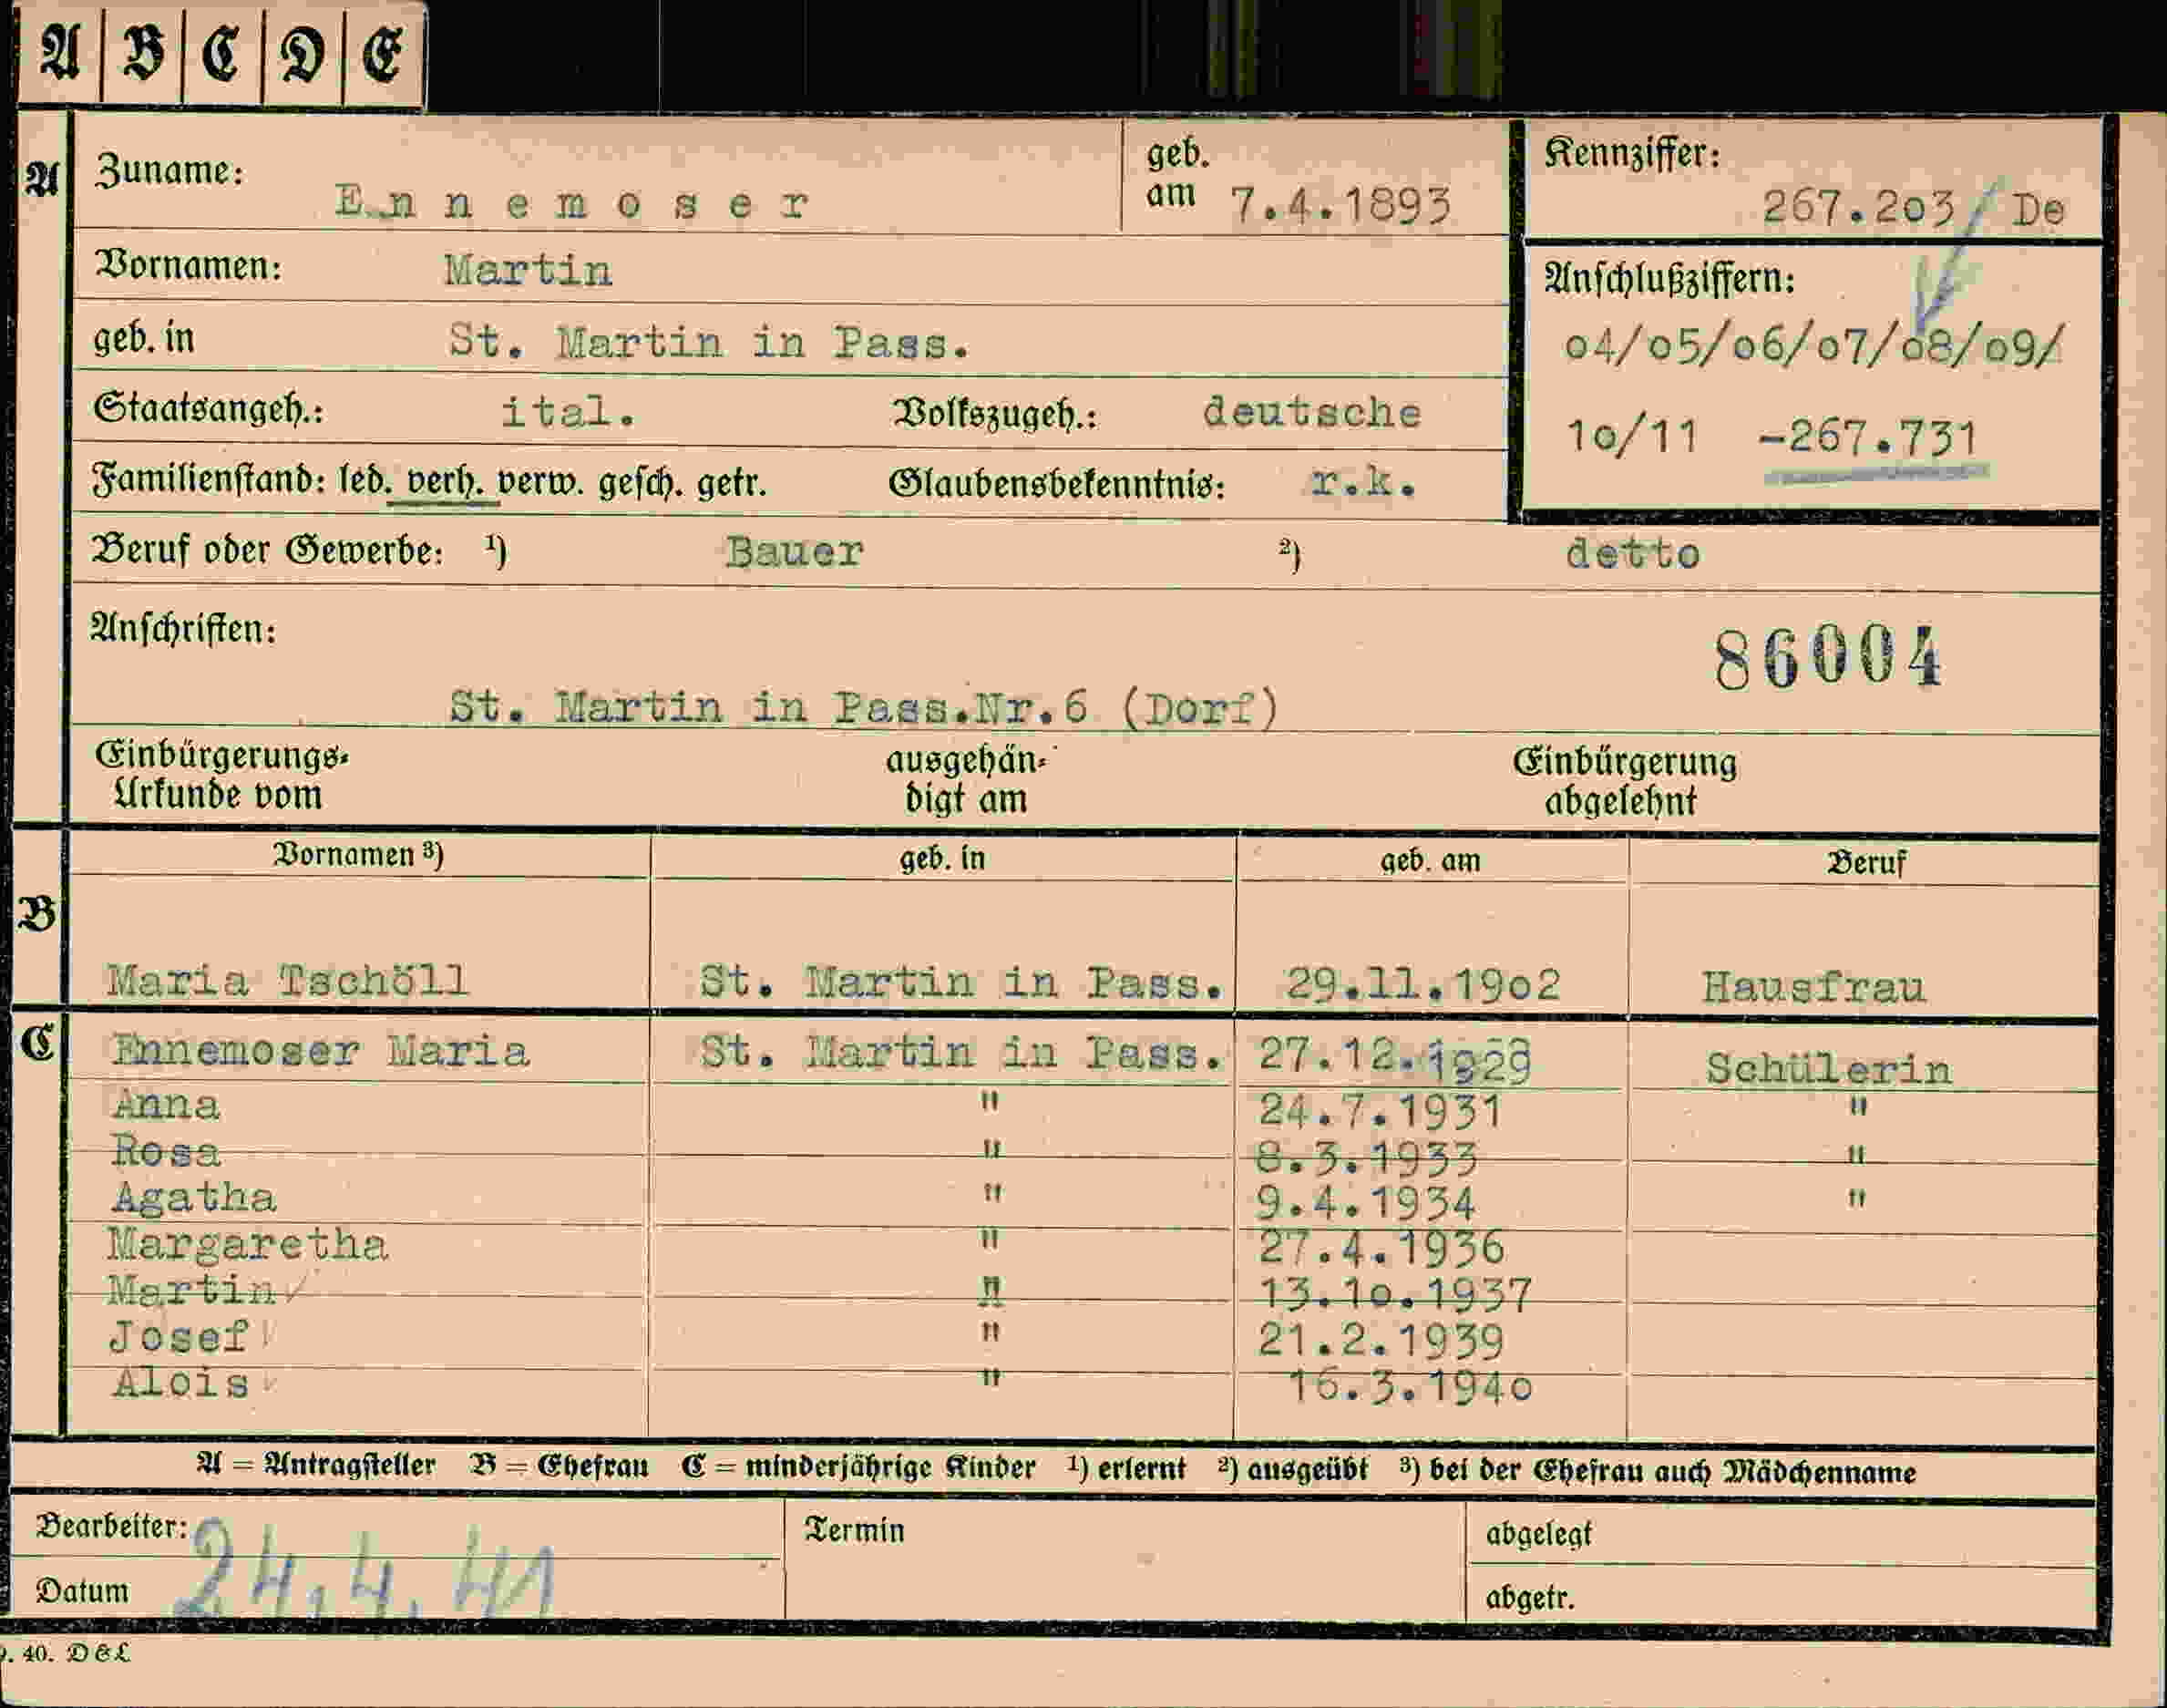 A B C D E
A
Zuname: Ennemoser geb. am 7.4.1893
Kennziffer: 267.2o3/ De
Vornamen: Martin
Anschlußziffern:
geb. in St. Martin in Pass.
o4/o5/o6/o7/o8/o9/
Staatsangeh.: ital. Volkszugeh.: deutsche
1o/11 -267.731
Familienstand: led. verh. verw. gesch. getr. Glaubensbekenntnis: r.k.
Beruf oder Gewerbe: ¹) Bauer ²) detto
Anschriften:
86004
St. Martin in Pass.Nr.6 (Dorf)
Einbürgerungs- ausgehän- Einbürgerung
Urkunde vom digt am abgelehnt
Vornamen ³) geb. in geb. am Beruf
B
Maria Tschöll St. Martin in Pass. 29.11.19o2 Hausfrau
C
Ennemoser Maria St. Martin in Pass. 27.12.1929 Schülerin
Anna " 24.7.1931 "
Rosa " 8.3.1933 "
Agatha " 9.4.1934 "
Margaretha " 27.4.1936
Martin " 13.1o.1937
Josef " 21.2.1939
Alois " 16.3.194o
A = Antragsteller B = Ehefrau C = minderjährige Kinder ¹) erlernt ²) ausgeübt ³) bei der Ehefrau auch Mädchenname
Bearbeiter: Termin abgelegt
Datum 24.4.41 abgetr.
. 40. D&L